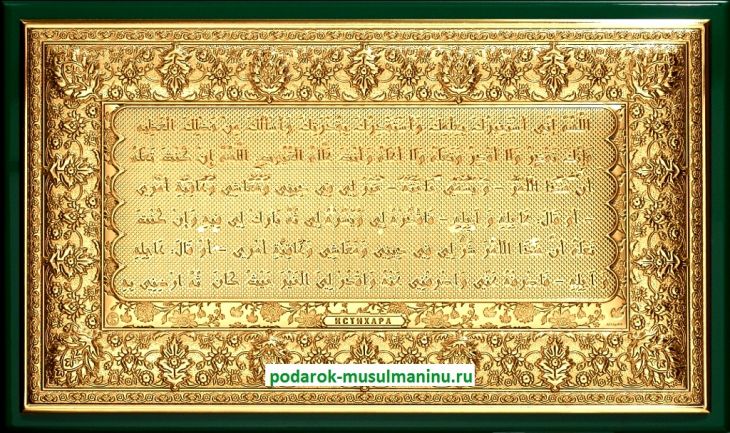 اللهم إني أستخيرك بعلمك وأستقدرك بقدرتك وأسألك من فضلك العظيم
فإنك تقدر ولا أقدر وتعلم ولا أعلم وأنت علام الغيوب اللهم إن كنت تعلم
أن هذا الأمر – ويسمى حاجته – خير لي في ديني ومعاشي وعاقبة أمري
– أو قال: عاجله و آجله – فاقدره لي ويسره لي ثم بارك لي فيه وإن كنت
تعلم أن هذا الأمر شر لي في ديني ومعاشي وعاقبة أمري – أو قال: عاجله
آجله – فاصرفه عني واصرفني عنه واقدر لي الخير حيث كان ثم ارضني به
ИСТИХАРА
podarok-musulmaninu.ru